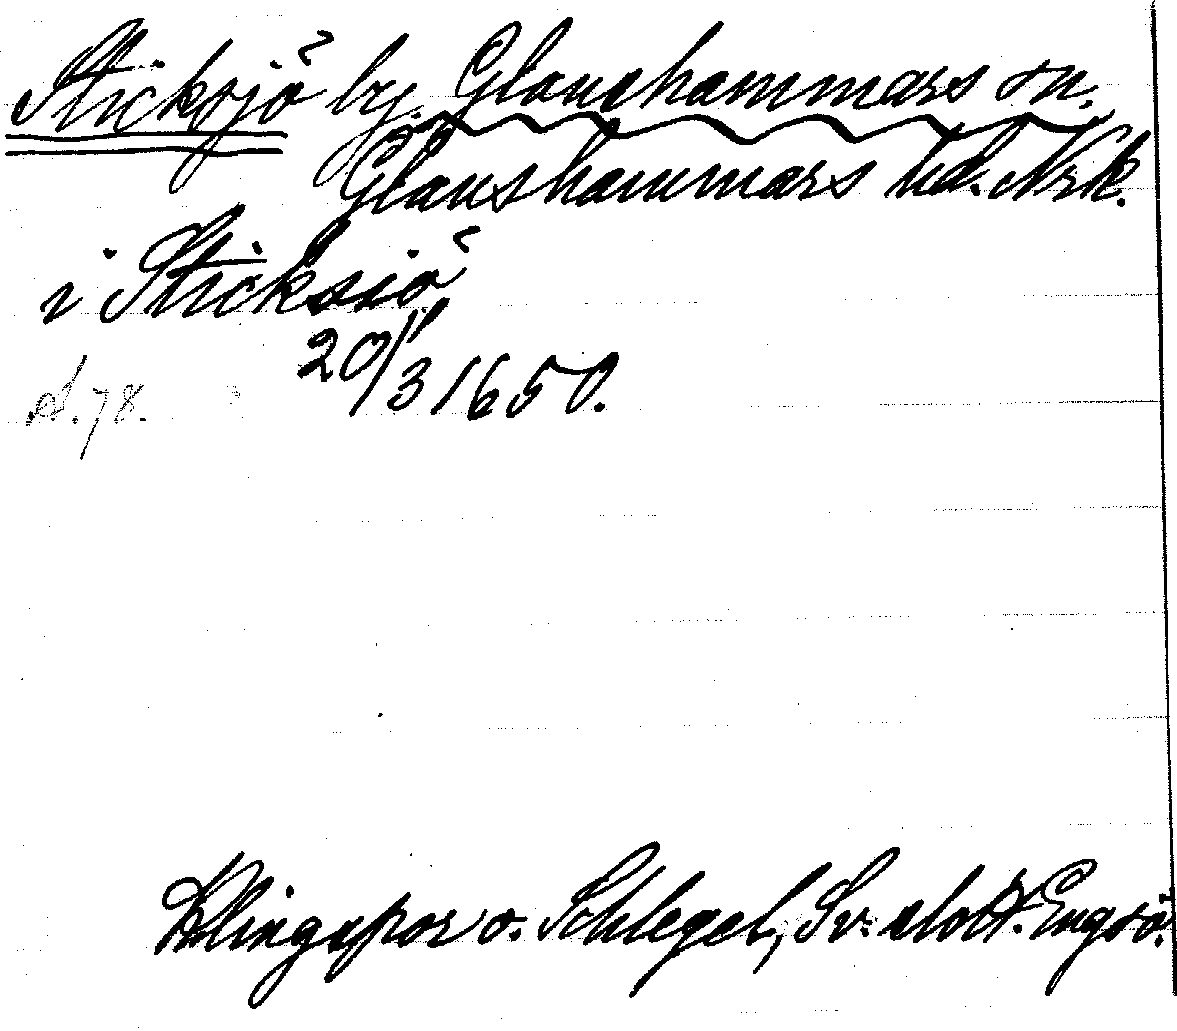 Sticksjö by. Glanshammars sn.
Glanshammars hd. Nrk.
i Sticksiö,
20/3 1650.
s. 78.
Klingspor o. Schlegel, Sv. slott. Engsö.